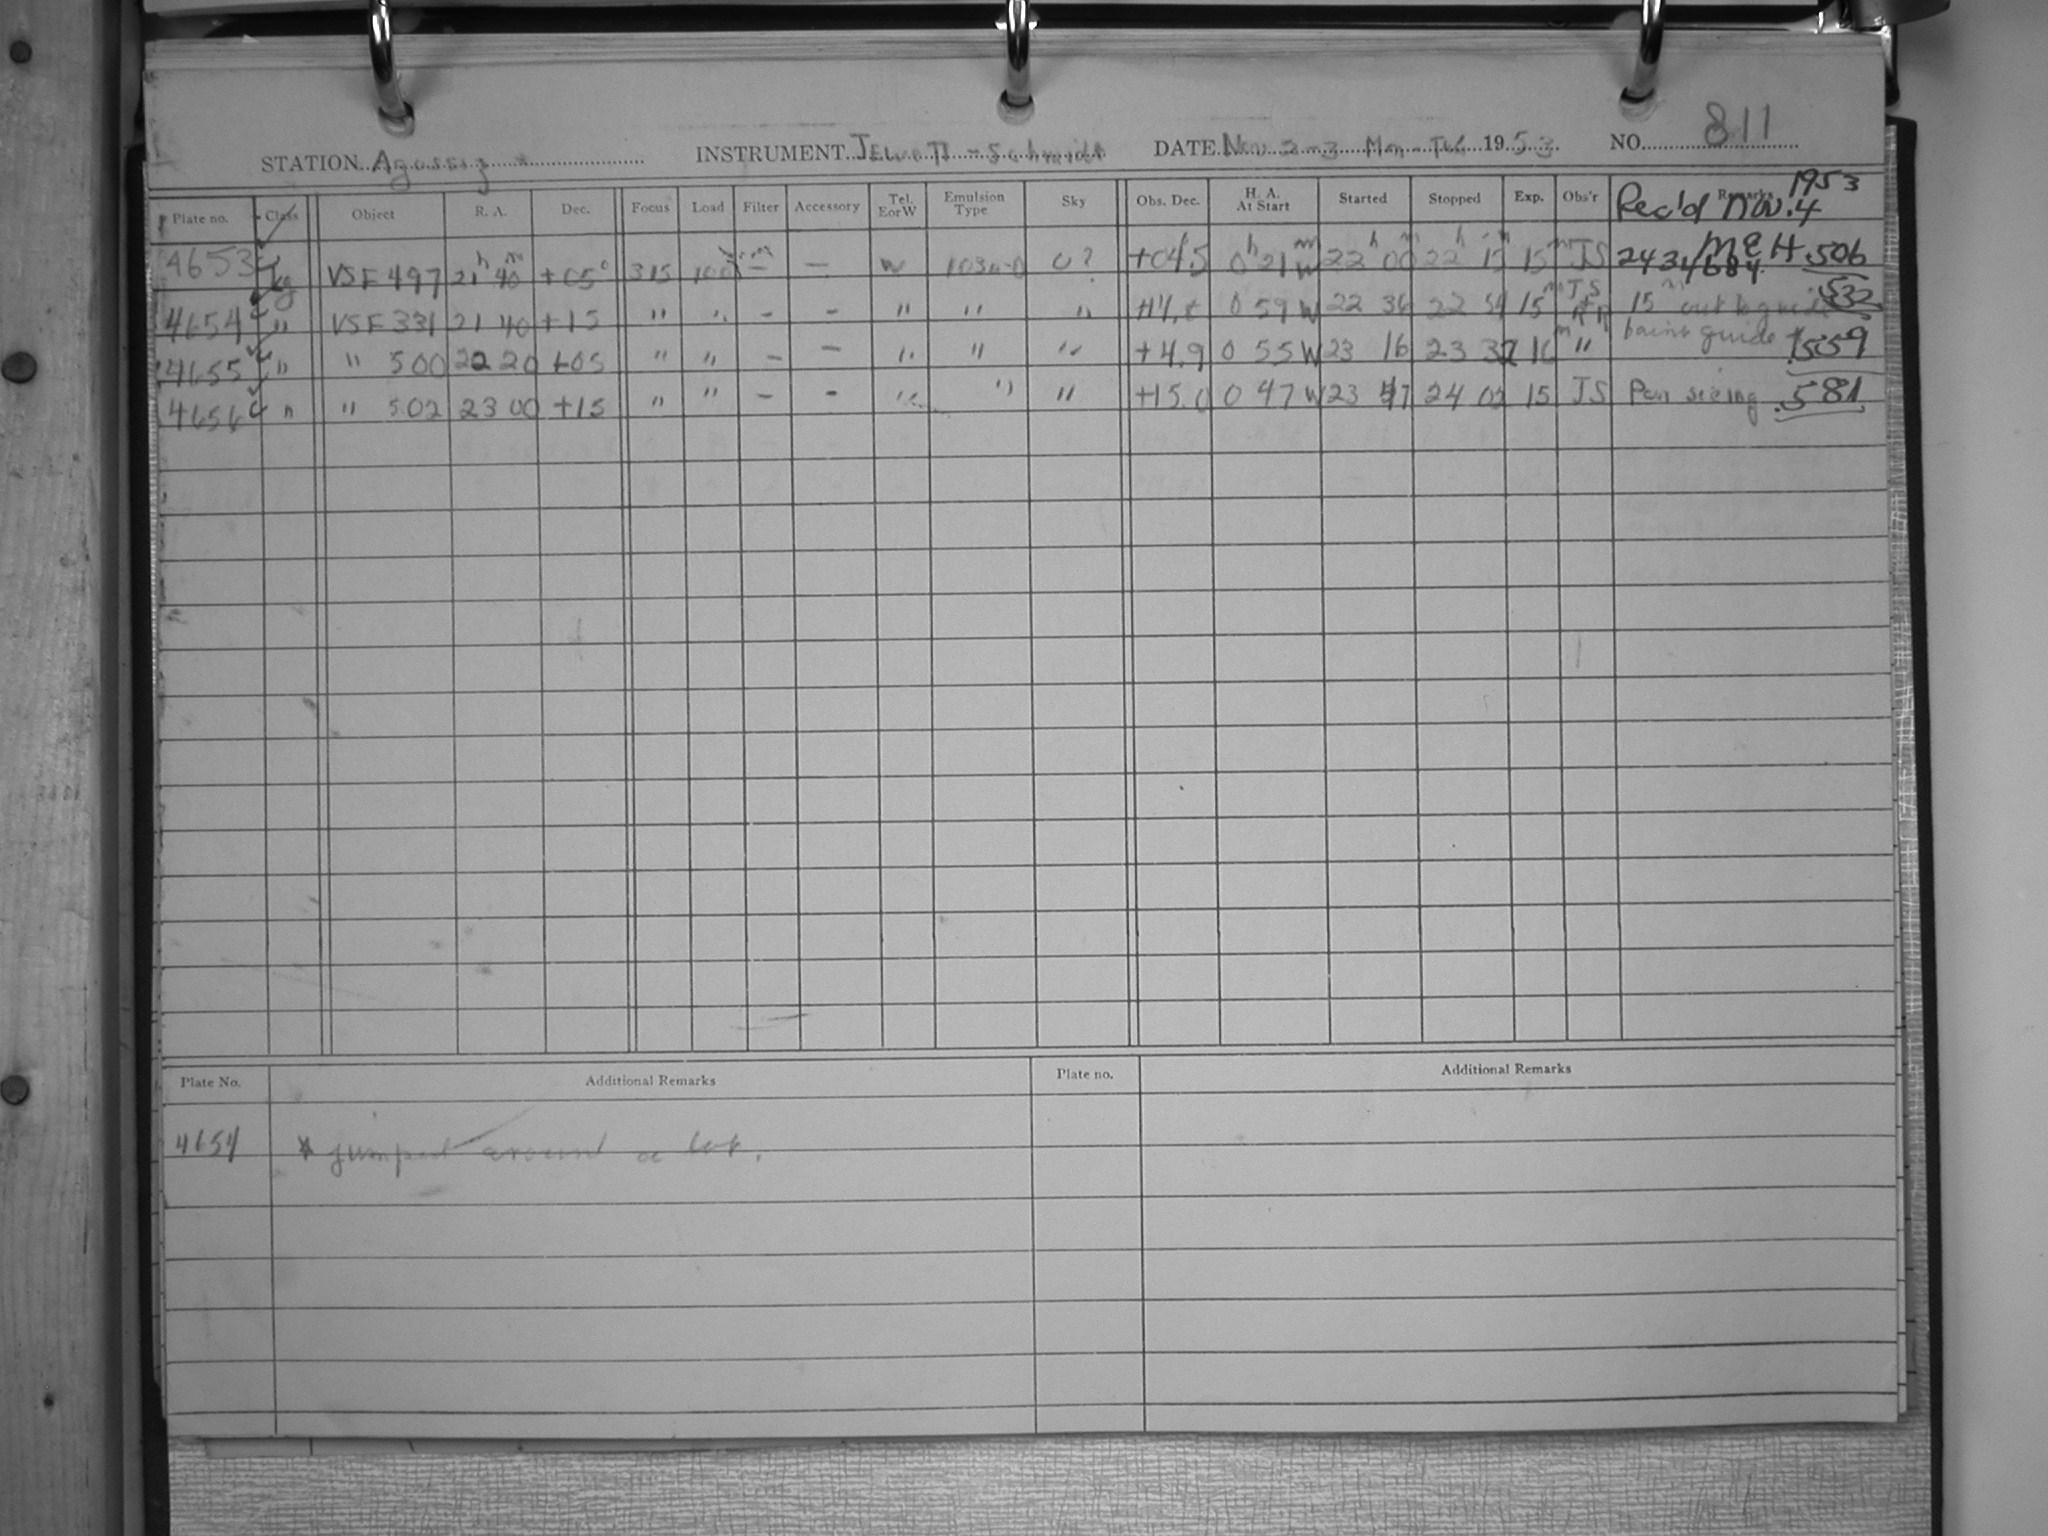 STATION Agassiz INSTRUMENT Jewett-Schmidt DATE Nov 2-3 Mon-Tue 1953 NO. 811
Plate no. Class Object R. A. Dec. Focus Load Filter Accessory Tel. E or W Emulsion Type Sky Obs. Dec. H. A. At Start Started Stopped Exp. Obs'r Remarks
Rec'd Nov. 4 1953
4653 VSF 497 21h 40m +05° 315 100 — — W 103a-O 0? +04.5 0h 21m W 22h 00m 22h 15m 15m JS 2434684 MEH .506
4654 " VSF 331 21 40 +15 " " - - " " " 0 59 W 22 36 22 54 15m JS 15m out .532
4655 " " 500 22 20 +05 " " - - " " " +4.9 0 55 W 23 16 23 32 16m " guide * .559
4656 " " 502 23 00 +15 " " - - " " " +15.0 0 47 W 23 47 24 02 15 JS seeing .581
Plate No. Additional Remarks Plate no. Additional Remarks
4654 * jumped around a lot.